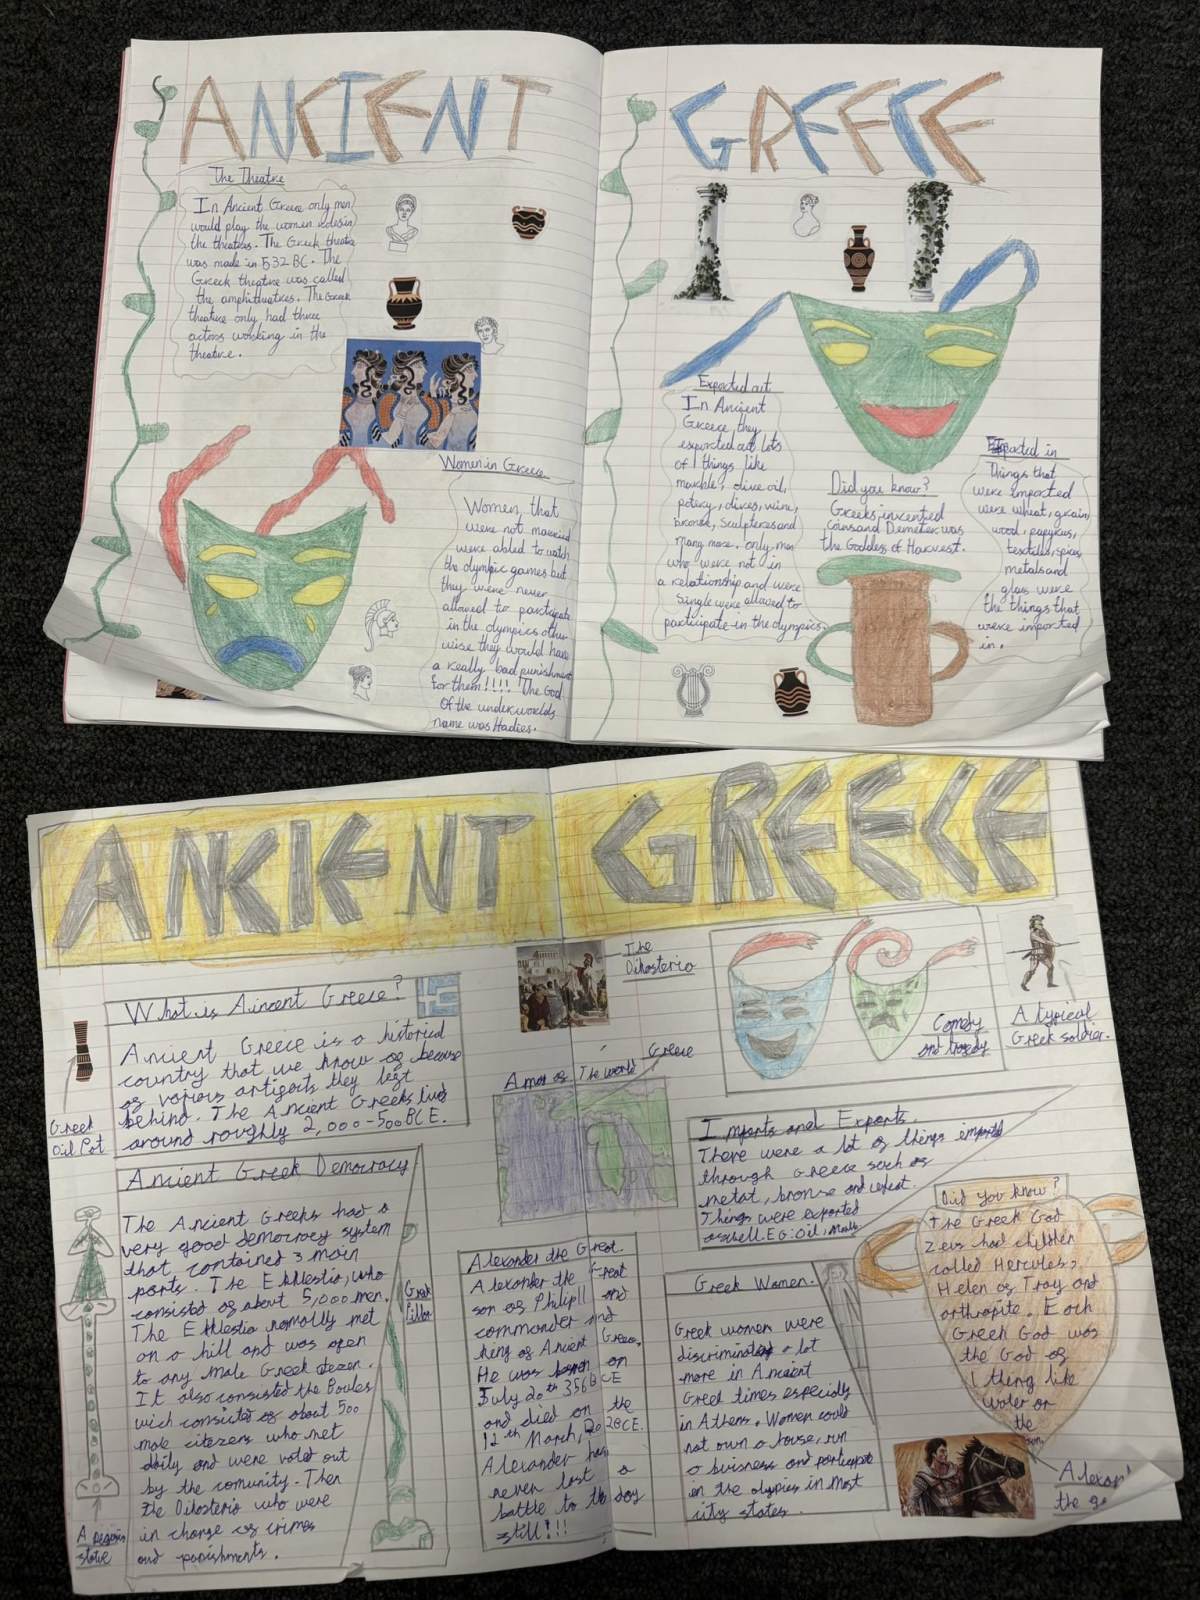 ANCIENT GREECE
The Theatre
In Ancient Greece only men
would play the women roles in
the theatres. The Greek theatre
was made in 532 BC. The
Greek theatre was called
the amphitheatres. The Greek
theatre only had three
actors working in the
theatre.
Women in Greece
Women, that
were not married
were abled to watch
the olympic games but
they were never
allowed to participate
in the olympics other
wise they would have
a really bad punishment
for them!!!! The God
Of the underworlds
name was Hadies.
Exported out
In Ancient
Greece they
exported out lots
of things like
marble, olive oil,
potery, olives, wine,
bronze, Sculptures and
many more. only men
who were not in
a relationship and were
Single were allowed to
participate in the olympics.
Did you know?
Greeks invented
Cans and Demeter was
the Goddess of Harvest.
Imported in
Things that
were imported
were wheat, grain,
wood, papyrus,
textiles, spices,
metals and
glass were
the things that
were imported
in.
ANCIENT GREECE
What is Aincent Greece?
Ancient Greece is a historical
country that we know of because
of various artifacts they left
behind. The Ancient Greeks lived
around roughly 2,000-500 BCE.
Greek
Oil Pot
Ancient Greek Democracy
The Ancient Greeks had a
very good democracy system
that contained 3 main
parts. The Ekklestia, who
consisted of about 5,000 men.
The Ekklestia normally met
on a hill and was open
to any male Greek citezen.
It also consisted the Boules
wich consisted of about 500
male citezens who met
daily and were voted out
by the comunity. Then
the Dikosterio who were
in charge of crimes
and punishments.
A
statue
Greek
Pillar
The
Dikosterio
Greece
A map of The world
Alexander the Great.
Alexander the Great
son of Philip II and
commander and
king of Ancient Greece.
He was born on
July 20th 356 BCE
and died on the
12th March,
Alexander has
never lost a
battle to this day
still!!!
Comedy
and tragedy
A typical
Greek soldier.
Imports and Exports
There were a lot of things imported
through Greece such as
metal, bronze and wheat.
Things were exported
aswell. E.G: Oil,
Greek Women.
Greek women were
discriminated a lot
more in Ancient
Greek times especially
in Athens. Women could
not own a house, run
a buisness and participate
in the olypics in most
city states.
Did you know?
The Greek God
Zeus had children
called Hercules,
Helen of Troy and
arthropite. Each
Greek God was
the God of
1 thing like
water or
the
Alexan
the g